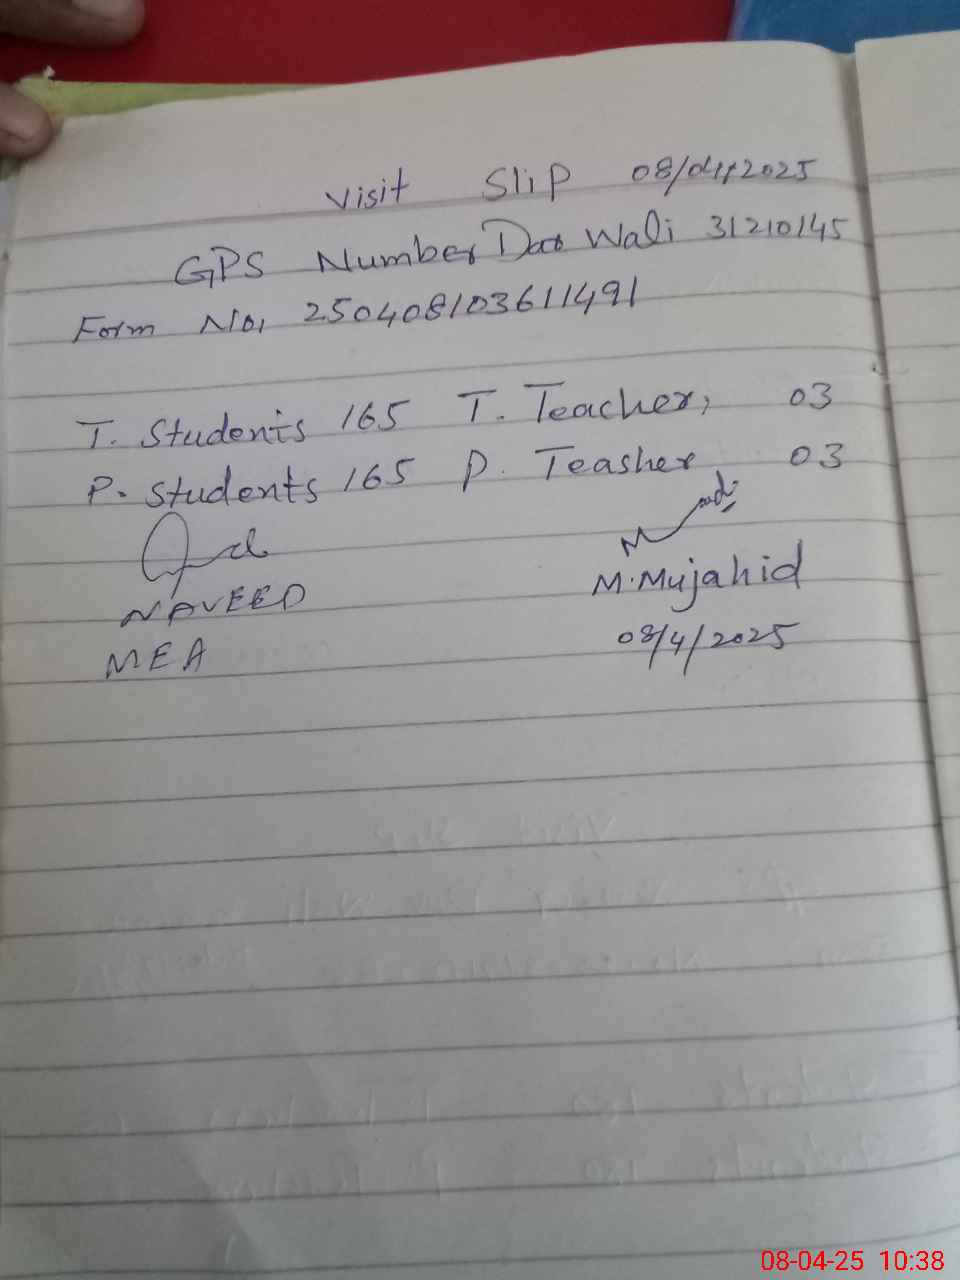 Visit Slip 08/04/2025
GPS Number Dar Wali 31210145
Form No, 250408103611491
T. Students 165 T. Teacher, 03
P. Students 165 P. Teasher 03
NAVEED
M.Mujahid
MEA
08/4/2025
08-04-25 10:38